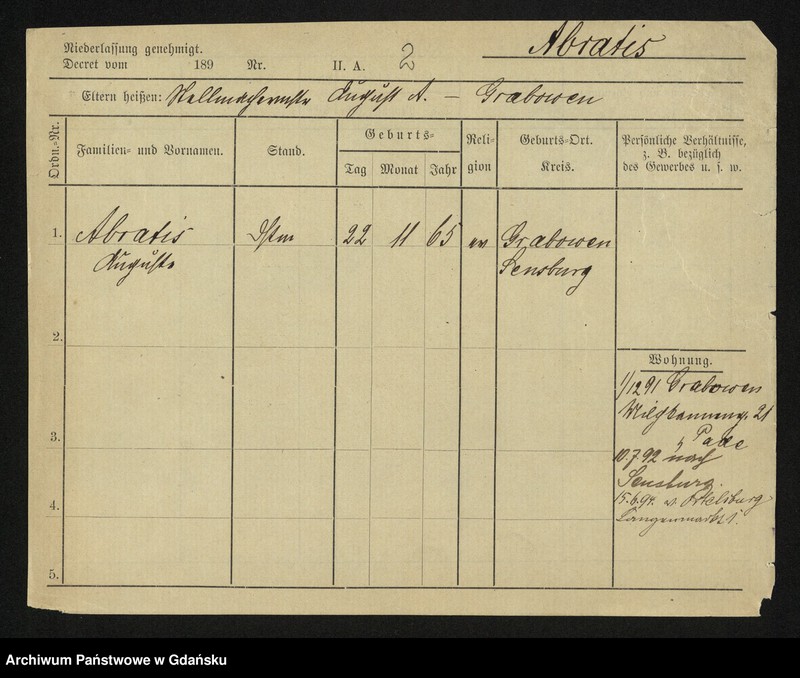 Abratis
Niederlassung genehmigt.
Decret vom 189 Nr. II. A. 2
Eltern heißen: August A. — Grabowen
Ordn.-Nr.
Familien- und Vornamen.
Stand.
Geburts-
Tag Monat Jahr
Religion
Geburts-Ort.
Kreis.
Persönliche Verhältnisse,
z. B. bezüglich
des Gewerbes u. s. w.
1. Abratis 22 11 65 ev Grabowen
Auguste Sensburg
2.
Wohnung.
1/12 91 Grabowen
Milchkanneng. 21
3.
10.7.92 nach
Sensburg.
4.
15.6.94. v. Ortelsburg
Langenmarkt 1.
5.
Archiwum Państwowe w Gdańsku